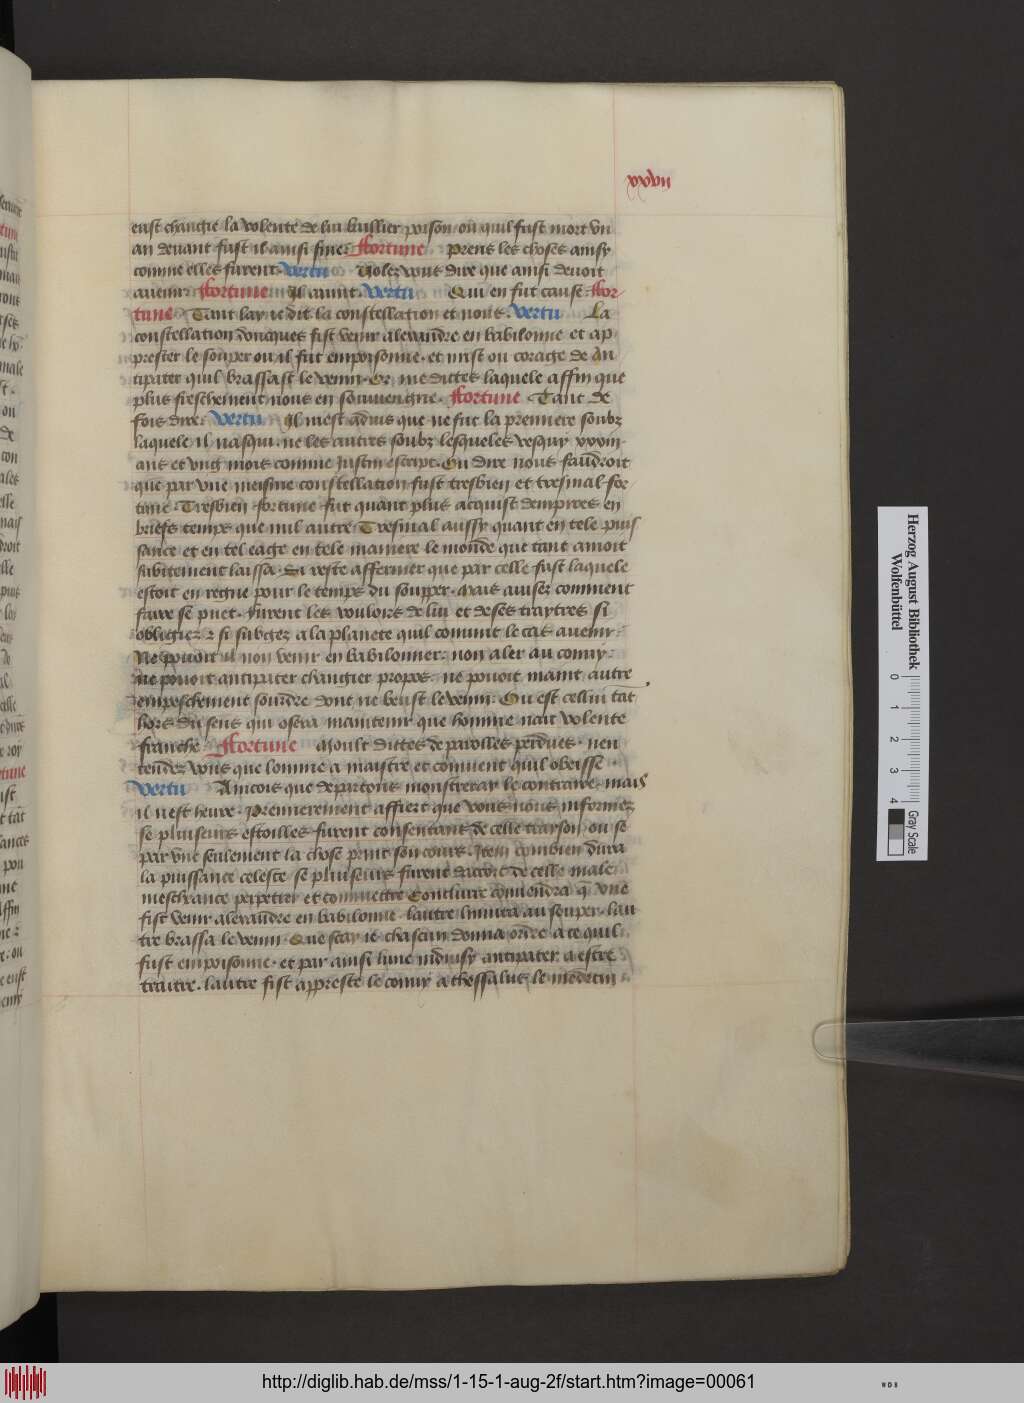 xxvii
eust changie la volente de lui baillier poison ou quil fust mort un
an devant fust il ainsi fine. Fortune prens les choses ainsy
comme elles furent. vertu Volez vous dire que ainsi devoit
avenir. Fortune Il avint. vertu Qui en fut cause. For-
tune Tant lay ie dit la constellation et nous. vertu La
constellation doncques fist venir alexandre en babilonne et ap-
prester le souper ou il fut empoisonne. et mist ou corage de An
tipater quil brassast le venin. Or me dittes laquele affin que
plus freschement nous en souviengne. Fortune Tant de
fois dire. vertu Il mest advis que ne fut la premiere soubz
laquele il nasqui. ne les autres soubz lesqueles vesquy xxxiii
ans et ung mois comme Justin escript. Ou dire nous faudroit
que par une meisme constellation fust tresbien et tresmal for-
tune. Tresbien fortune fut quant plus acquist dempires en
briefs temps que nul autre. Tresmal aussy quant en tele puis
sance et en tel eage en tele maniere le monde que tant amoit
subitement laissa. Si reste affermer que par celle fust laquele
estoit en regne pour le temps du soupper. Mais avisez comment
faire se puet. furent les vouloirs de lui et de ses traytres si
obligiez et si subgez a la planete quil convint le cas avenir.
Ne povoit il non venir en babilonne. non aler au convy.
ne povoit antipater changier propos. ne povoit maint autre
empeschement sourdre dont ne beust le venin. Ou est cellui tat
hors du sens qui osera maintenir que homme nait volente
franche Fortune Moult dittes de parolles perdues. nen
tendez vous que lomme a maistre et convient quil obeisse.
vertu Aincois que departons monstreray le contraire. mais
il nest heure. Premierement affiert que vous nous informez
se pluiseurs estoilles furent consentans de celle trayson ou se
par une seulement la chose print son cours. Item combien dura
la puissance celeste. se pluiseurs furent dacort de celle male
meschance perpetrer et commettre Conclurre convendra q̄ une
fist venir alexandre en babilonne. lautre linvita au souper. lau
tre brassa le venin. Que scay ie chascun donna ordre a ce quil
fust empoisonne. et par ainsi lune induisy antipater a estre
traitre. lautre fist appreste le convy a thessalus le medecin
Herzog August Bibliothek
Wolfenbüttel
0 1 2 3 4
Gray Scale
http://diglib.hab.de/mss/1-15-1-aug-2f/start.htm?image=00061